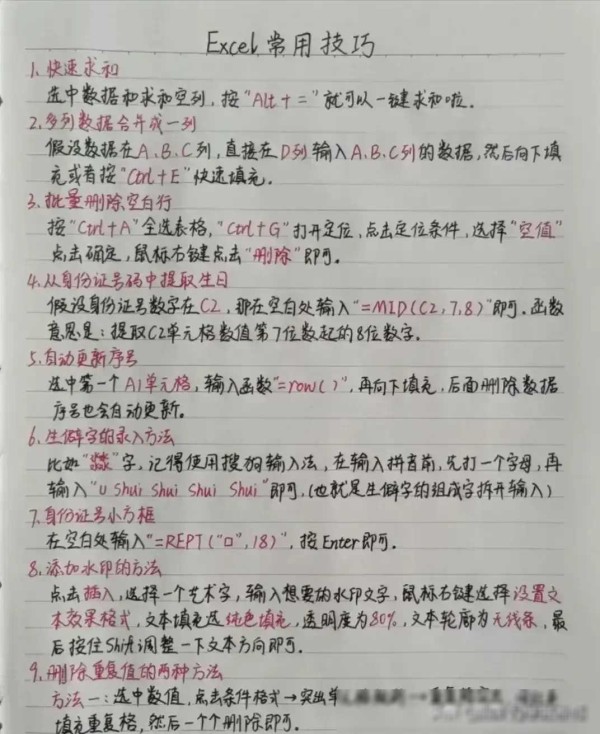 Excel 常用技巧
1.快速求和
选中数据和求和空列,按"Alt + ="就可以一键求和啦.
2.多列数据合并成一列
假设数据在A、B、C列,直接在D列输入A、B、C列的数据,然后向下填
充或者按"Ctrl+E"快速填充.
3.批量删除空白行
按"Ctrl+A"全选表格,"Ctrl+G"打开定位,点击定位条件,选择"空值"
点击确定,鼠标右键点击"删除"即可.
4.从身份证号码中提取生日
假设身份证号数字在C2,那在空白处输入"=MID(C2,7,8)"即可.函数
意思是:提取C2单元格数值第7位数起的8位数字.
5.自动更新序号
选中第一个A1单元格,输入函数"=row()",再向下填充,后面删除数据
序号也会自动更新.
6.生僻字的录入方法
比如"㵘"字,记得使用搜狗输入法,在输入拼音前,先打一个字母,再
输入"U Shui Shui Shui Shui"即可.(也就是生僻字的组成字拆开输入)
7.身份证号小方框
在空白处输入"=REPT("□",18)",按Enter即可.
8.添加水印的方法
点击插入,选择一个艺术字,输入想要的水印文字,鼠标右键选择设置文
本效果格式,文本填充选纯色填充,透明度为80%,文本轮廓为无线条,最
后按住Shift调整一下文本方向即可.
9.删除重复值的两种方法
方法一:选中数值,点击条件格式→突出单
填充重复格,然后一个个删除即可.